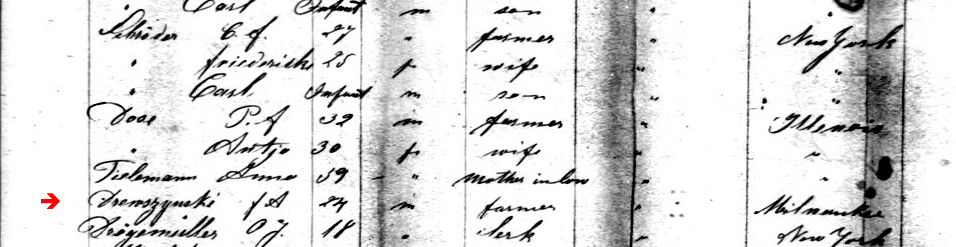 " Carl Infant m son
Schröder C. f. 27 " farmer " New York
" friederike 25 f wife "
" Carl Infant m son " "
Dose P. f 32 m farmer " Illinois
" Antje 30 f wife " "
Tielemann Anna 59 " Mother in law "
Drewszynski f A 24 m farmer " Milwaukee
Drögemüller O J. 18 " clerk New York